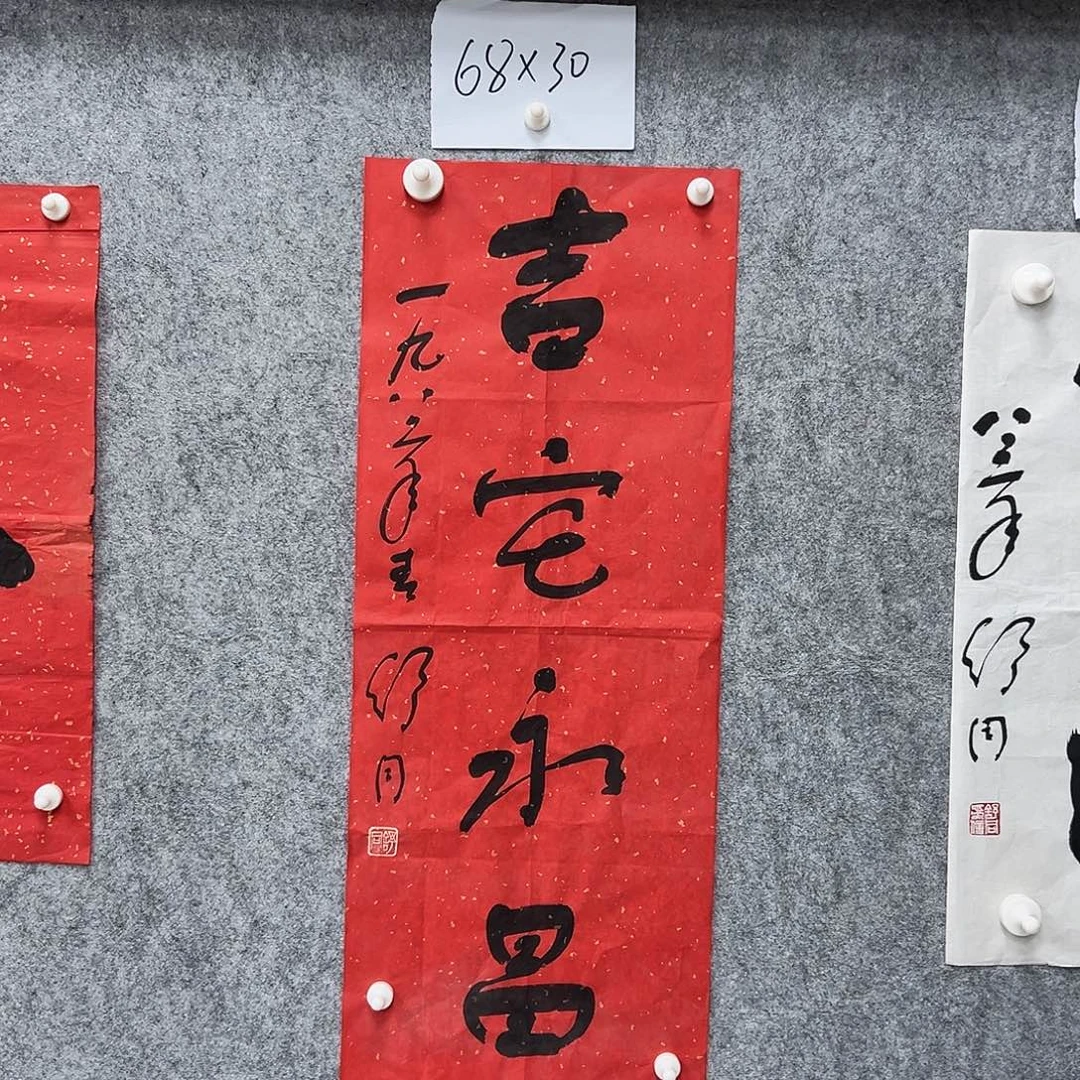 68×30
吉宅永昌
一九八三年春 舒同
八三年 舒同